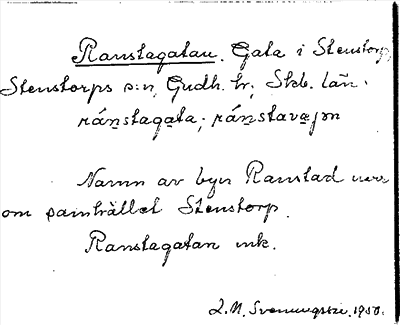 Ranstagatan. Gata i Stenstorp,
Stenstorps s:n, Gudh. hr; Skb. län.
ránstagata; ránstavæjən
Namn av byn Ranstad
om samhället Stenstorp.
Ranstagatan ink.
1950.